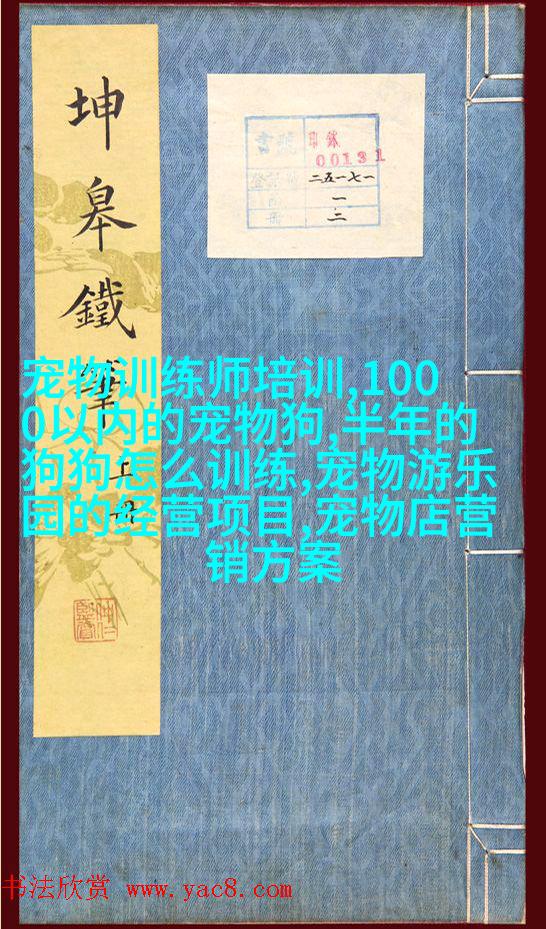 坤皋鐵筆
上冊
書號
印錄
00131
登記號
二五一七一
一
冊
二
宠物训练师培训,100
0以内的宠物狗,半年的
狗狗怎么训练,宠物游乐
园的经营项目,宠物店营
销方案
书法欣赏 www.yac8.com